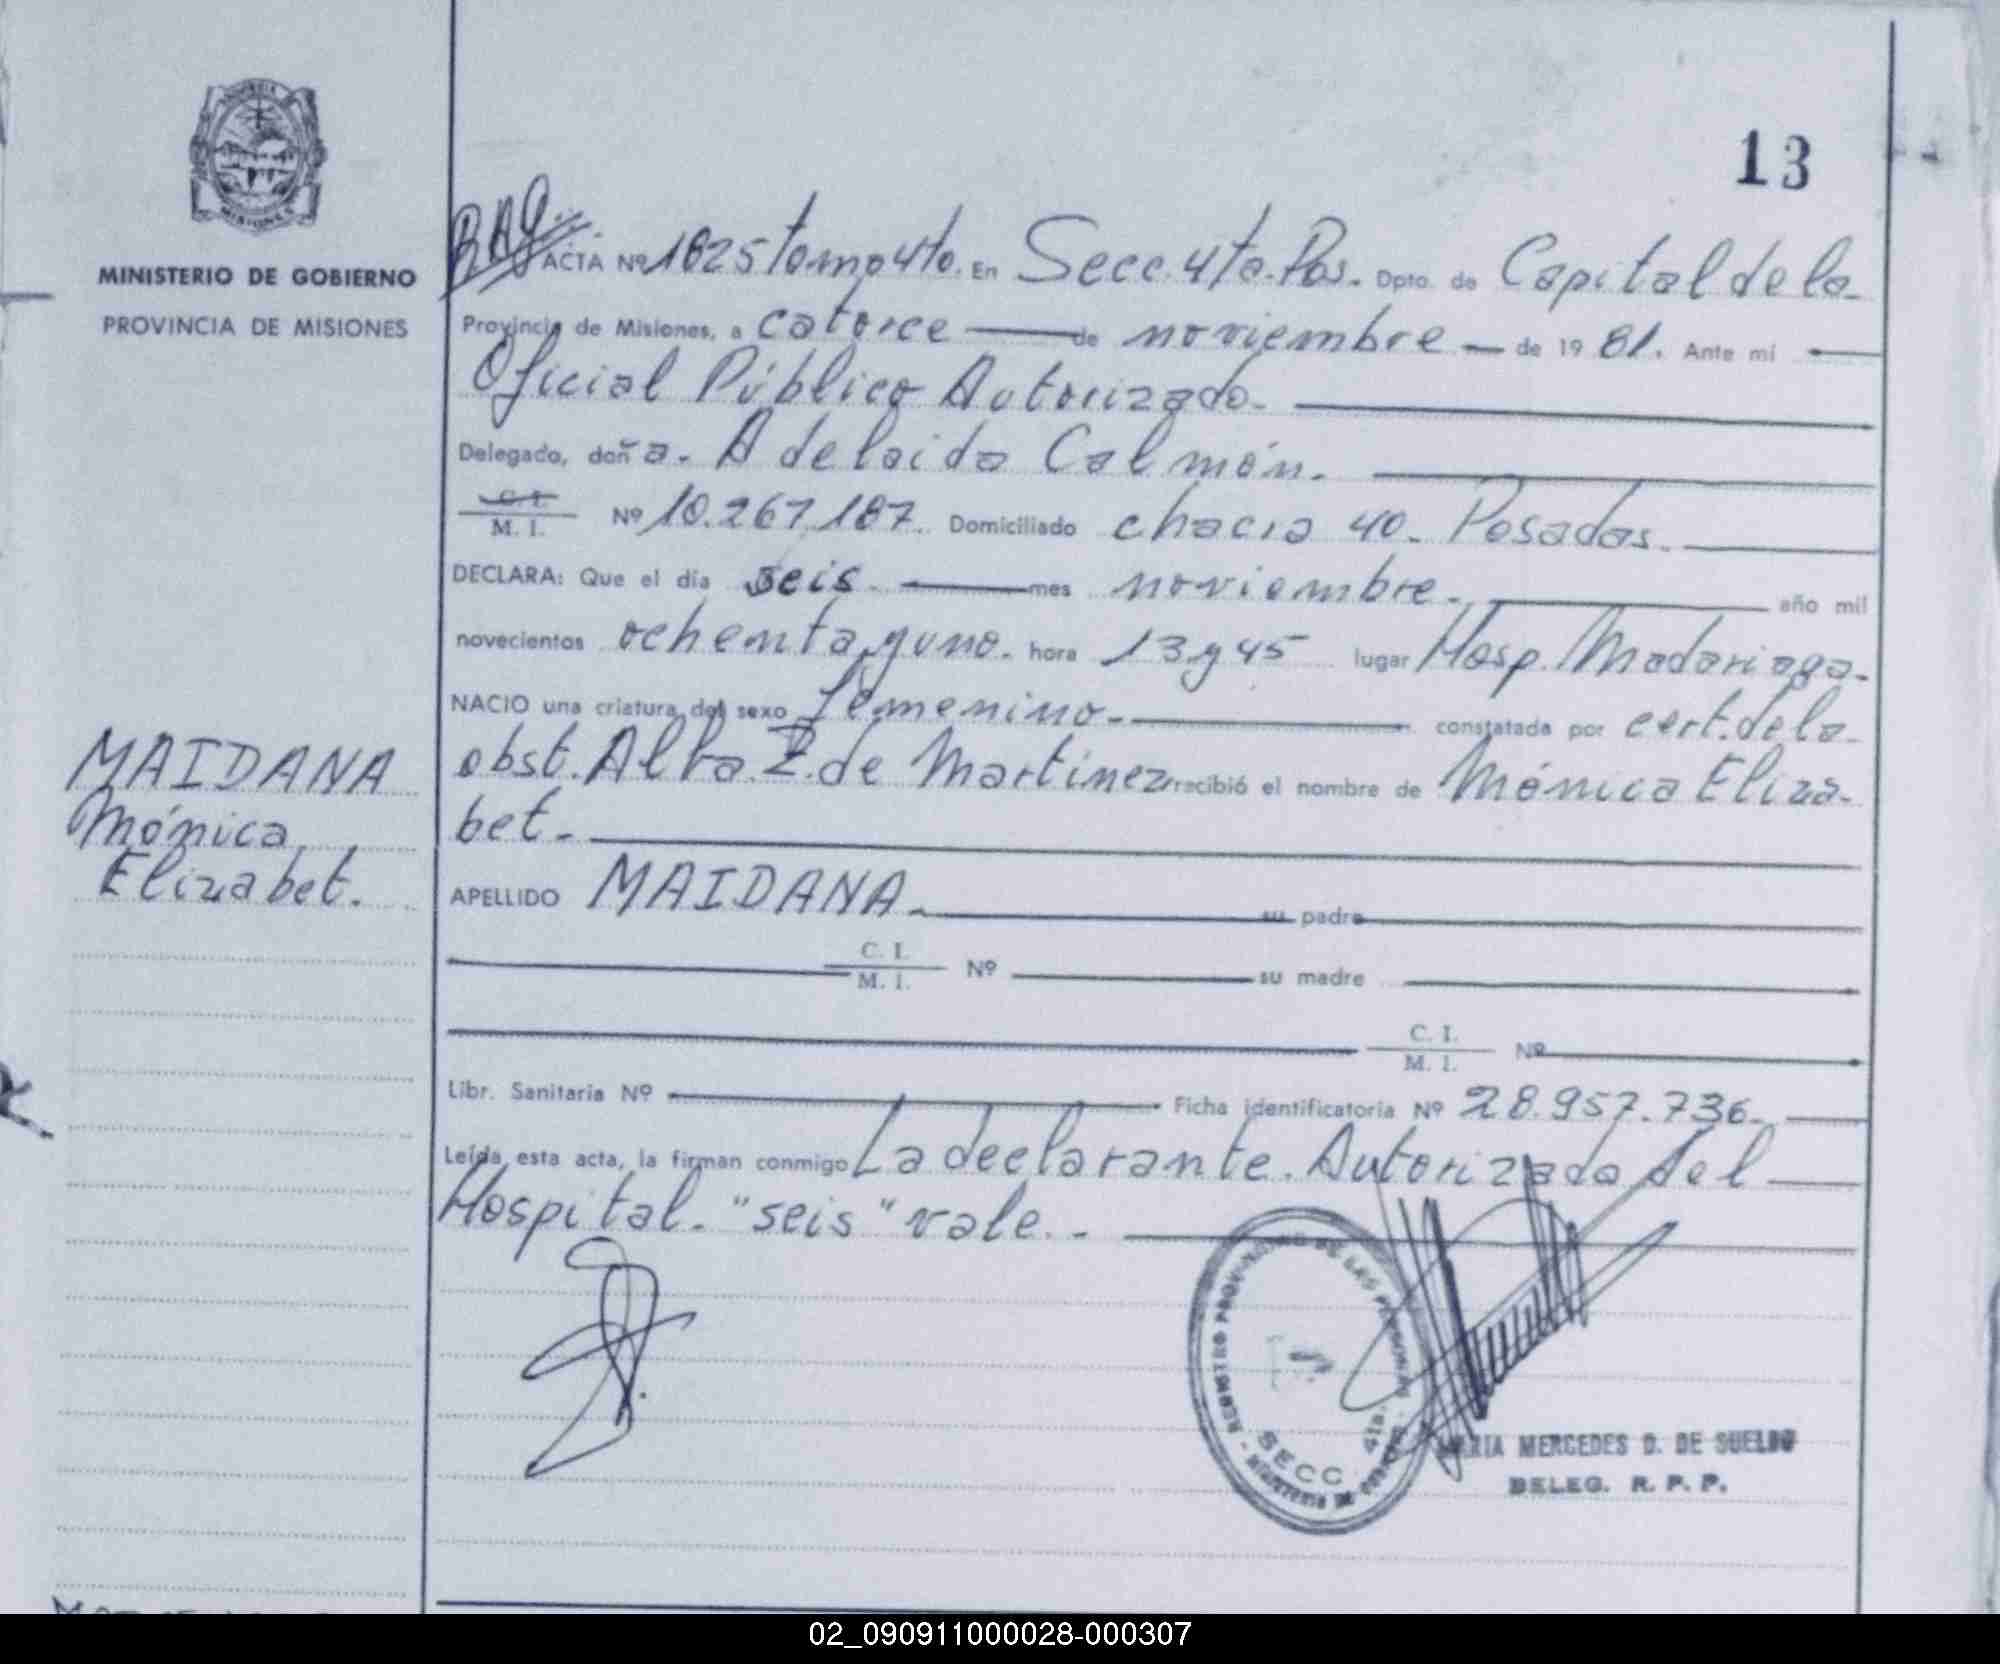 13
MINISTERIO DE GOBIERNO
PROVINCIA DE MISIONES
ACTA Nº 1825 tomo 4to. En Secc. 4ta. Pos. Dpto. de Capital de la
Provincia de Misiones, a catorce de noviembre de 19 81. Ante mi
Oficial Público Autorizado.
Delegado, doña. Adelaida Calmón.
C. I.
M. I. Nº 10.267.187. Domiciliado chacra 40. Posadas.
DECLARA: Que el día seis mes noviembre. año mil
novecientos ochenta y uno. hora 13 y 45 lugar Hosp. Madariaga.
NACIO una criatura del sexo femenino. constatada por cert. de la
obst. Alba Z. de Martinez recibió el nombre de Mónica Eliza-
bet.
MAIDANA
Mónica
Elizabet.
APELLIDO MAIDANA. su padre
C. I.
M. I. Nº su madre
C. I.
M. I. Nº
Libr. Sanitaria Nº Ficha identificatoria Nº 28.957.736.
Leída esta acta, la firman conmigo La declarante. Autorizada del
Hospital. "seis" vale.
REGISTRO PROVINCIAL DE LAS PERSONAS
SECC. 4ta.
MINISTERIO DE GOBIERNO
MARIA MERCEDES D. DE SUELDO
DELEG. R. P. P.
02_090911000028-000307